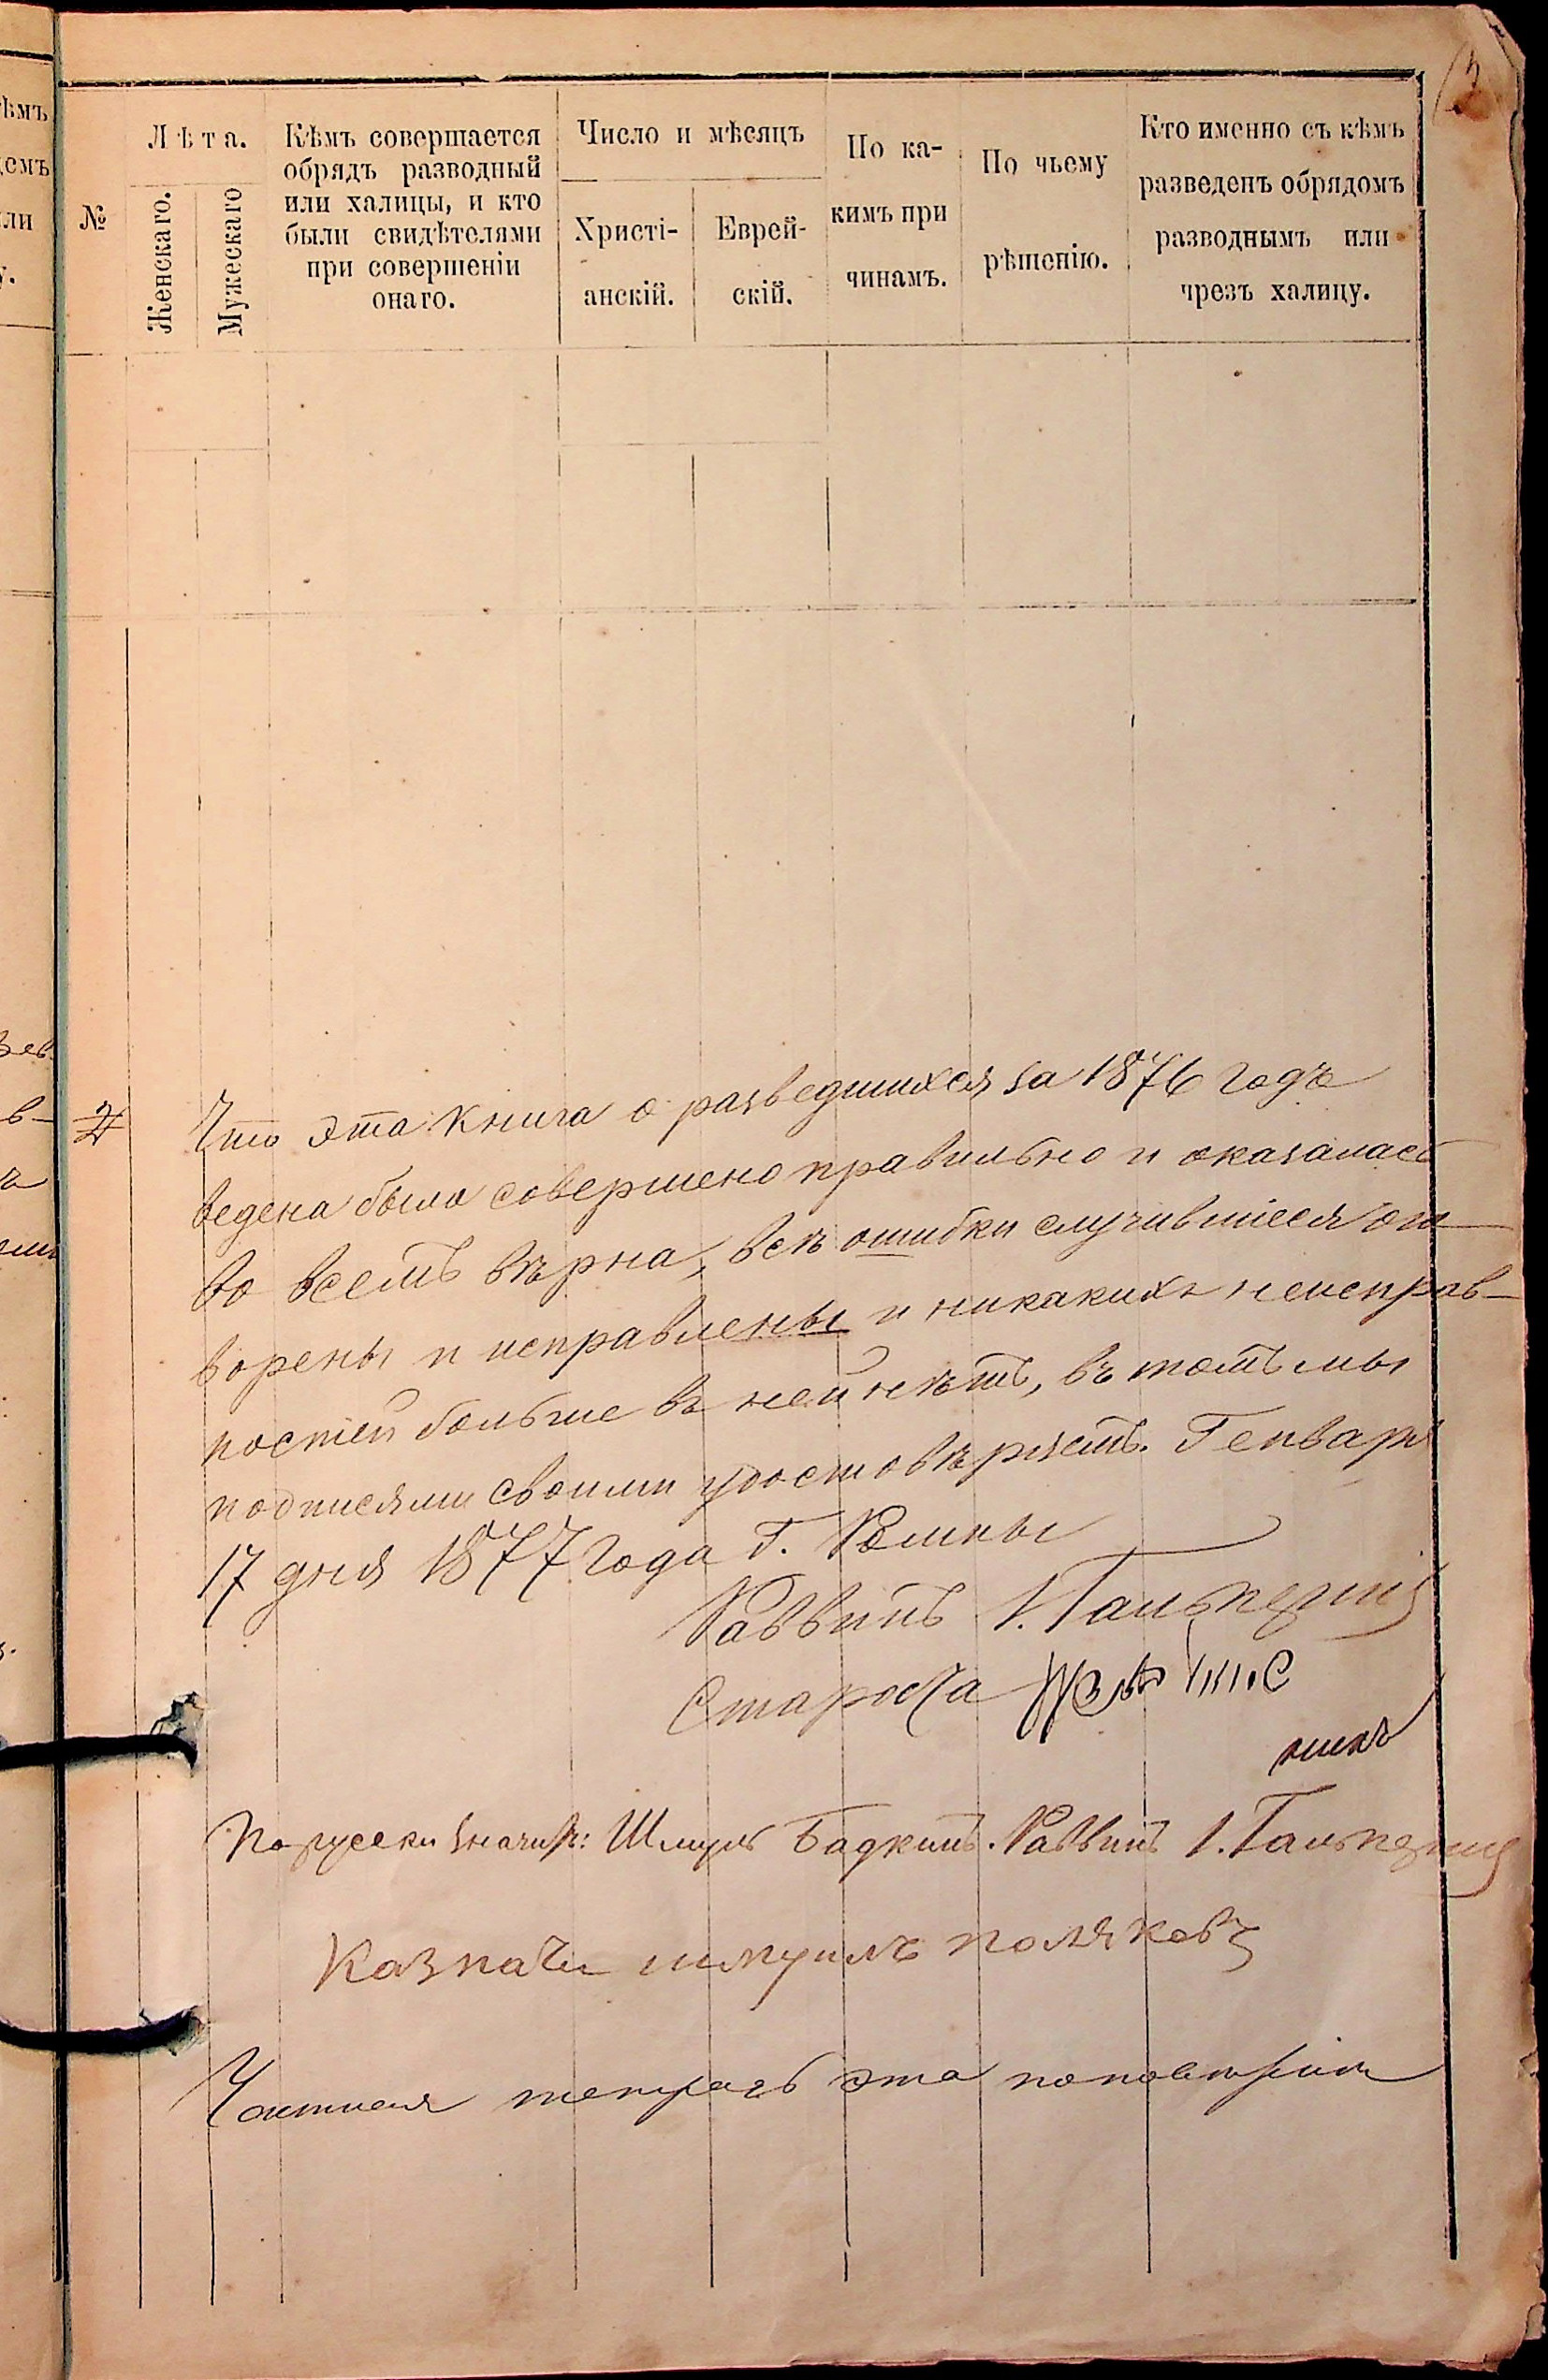 3
№
Лѣта.
Женскаго.
Мужескаго
Кѣмъ совершается
обрядъ разводный
или халицы, и кто
были свидѣтелями
при совершеніи
онаго.
Число и мѣсяцъ
Христі-
анскій.
Еврей-
скій.
По ка-
кимъ при
чинамъ.
По чьему
рѣшенію.
Кто именно съ кѣмъ
разведенъ обрядомъ
разводнымъ или
чрезъ халицу.
Что эта книга о разведшихся за 1876 годъ
ведена была совершено правильно и оказалась
во всемъ вѣрна, всѣ ошибки случившіеся ого-
ворены и исправлены и никакихъ неисправ-
ностей больше въ ней нѣтъ, въ томъ мы
подписями своими удостовѣряемъ. Генваря
17 дня 1877 года Г. Ромны
Раввинъ І. Гальперинъ
Староста
По русски значитъ: Шмуль Бадкинъ. Раввинъ І. Гальперинъ
Казначи шмуилъ поляковъ
тетрадь эта